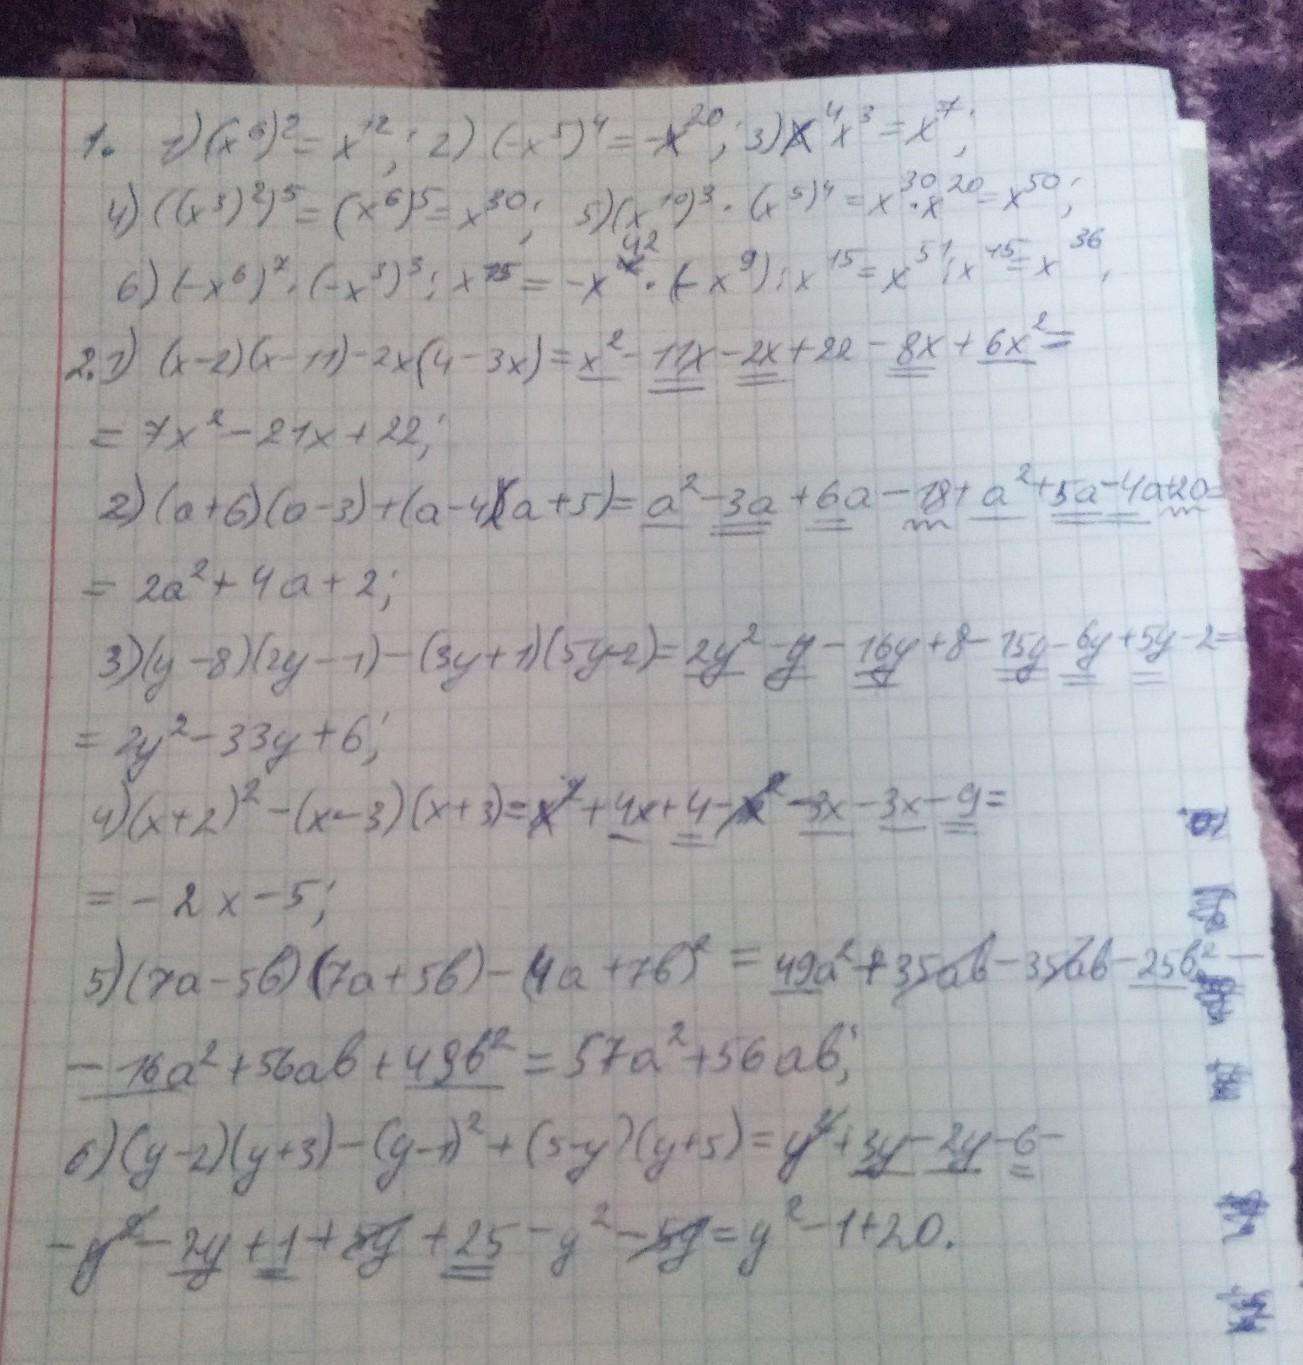 1. 1) (x⁶)² = x¹²; 2) (-x⁵)⁴ = -x²⁰; 3) x⁴x³ = x⁷;
4) ((x³)²)⁵ = (x⁶)⁵ = x³⁰; 5) (x¹⁰)³ · (x⁵)⁴ = x³⁰ · x²⁰ = x⁵⁰;
6) (-x⁶)⁷ · (-x³)³ : x¹⁵ = -x⁴² · (-x⁹) : x¹⁵ = x⁵¹ : x¹⁵ = x³⁶;
2. 1) (x-2)(x-11) - 2x(4-3x) = x² - 11x - 2x + 22 - 8x + 6x² =
= 7x² - 21x + 22;
2) (a+6)(a-3) + (a-4)(a+5) = a² - 3a + 6a - 18 + a² + 5a - 4a + 20 =
= 2a² + 4a + 2;
3) (y-8)(2y-1) - (3y+1)(5y-2) = 2y² - y - 16y + 8 - 15y - 6y + 5y - 2 =
= 2y² - 33y + 6;
4) (x+2)² - (x-3)(x+3) = x² + 4x + 4 - x² - 3x - 3x - 9 =
= - 2x - 5;
5) (7a-5b)(7a+5b) - (4a+7b)² = 49a² + 35ab - 35ab - 25b² -
- 16a² + 56ab + 49b² = 57a² + 56ab;
6) (y-2)(y+3) - (y-1)² + (5-y)(y+5) = y² + 3y - 2y - 6 -
- y² - 2y + 1 + 5y + 25 - y² - 5y = y² - 1 + 20.